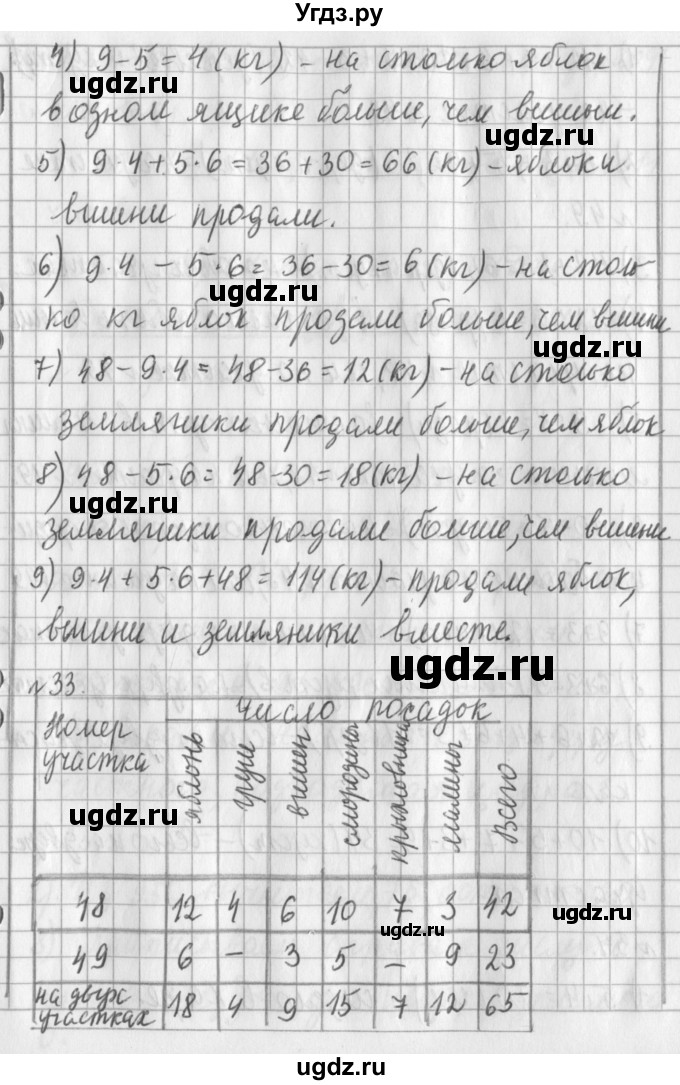 Угдз.ру
4) 9-5=4(кг) - на столько яблок
ugdz.ru
в одном ящике больше, чем вишни.
ugdz.ru
5) 9·4+5·6=36+30=66(кг) - яблок и
вишни продали.
6) 9·4 - 5·6= 36-30=6(кг) - на столь-
ugdz.ru
ко кг яблок продали больше, чем вишни
ugdz.ru
7) 48-9·4= 48-36=12(кг) - на столько
земляники продали больше, чем яблок
8) 48-5·6= 48-30=18(кг) - на столько
ugdz.ru
земляники продали больше, чем вишни
9) 9·4+5·6+48=114(кг) - продали яблок,
вишни и земляники вместе.
ugdz.ru
№33.
Номер участка число посадок
яблонь груш вишен смородины крыжовника малины Всего
ugdz.ru
48 12 4 6 10 7 3 42
ugdz.ru
49 6 - 3 5 - 9 23
на двух участках 18 4 9 15 7 12 65
ugdz.ru